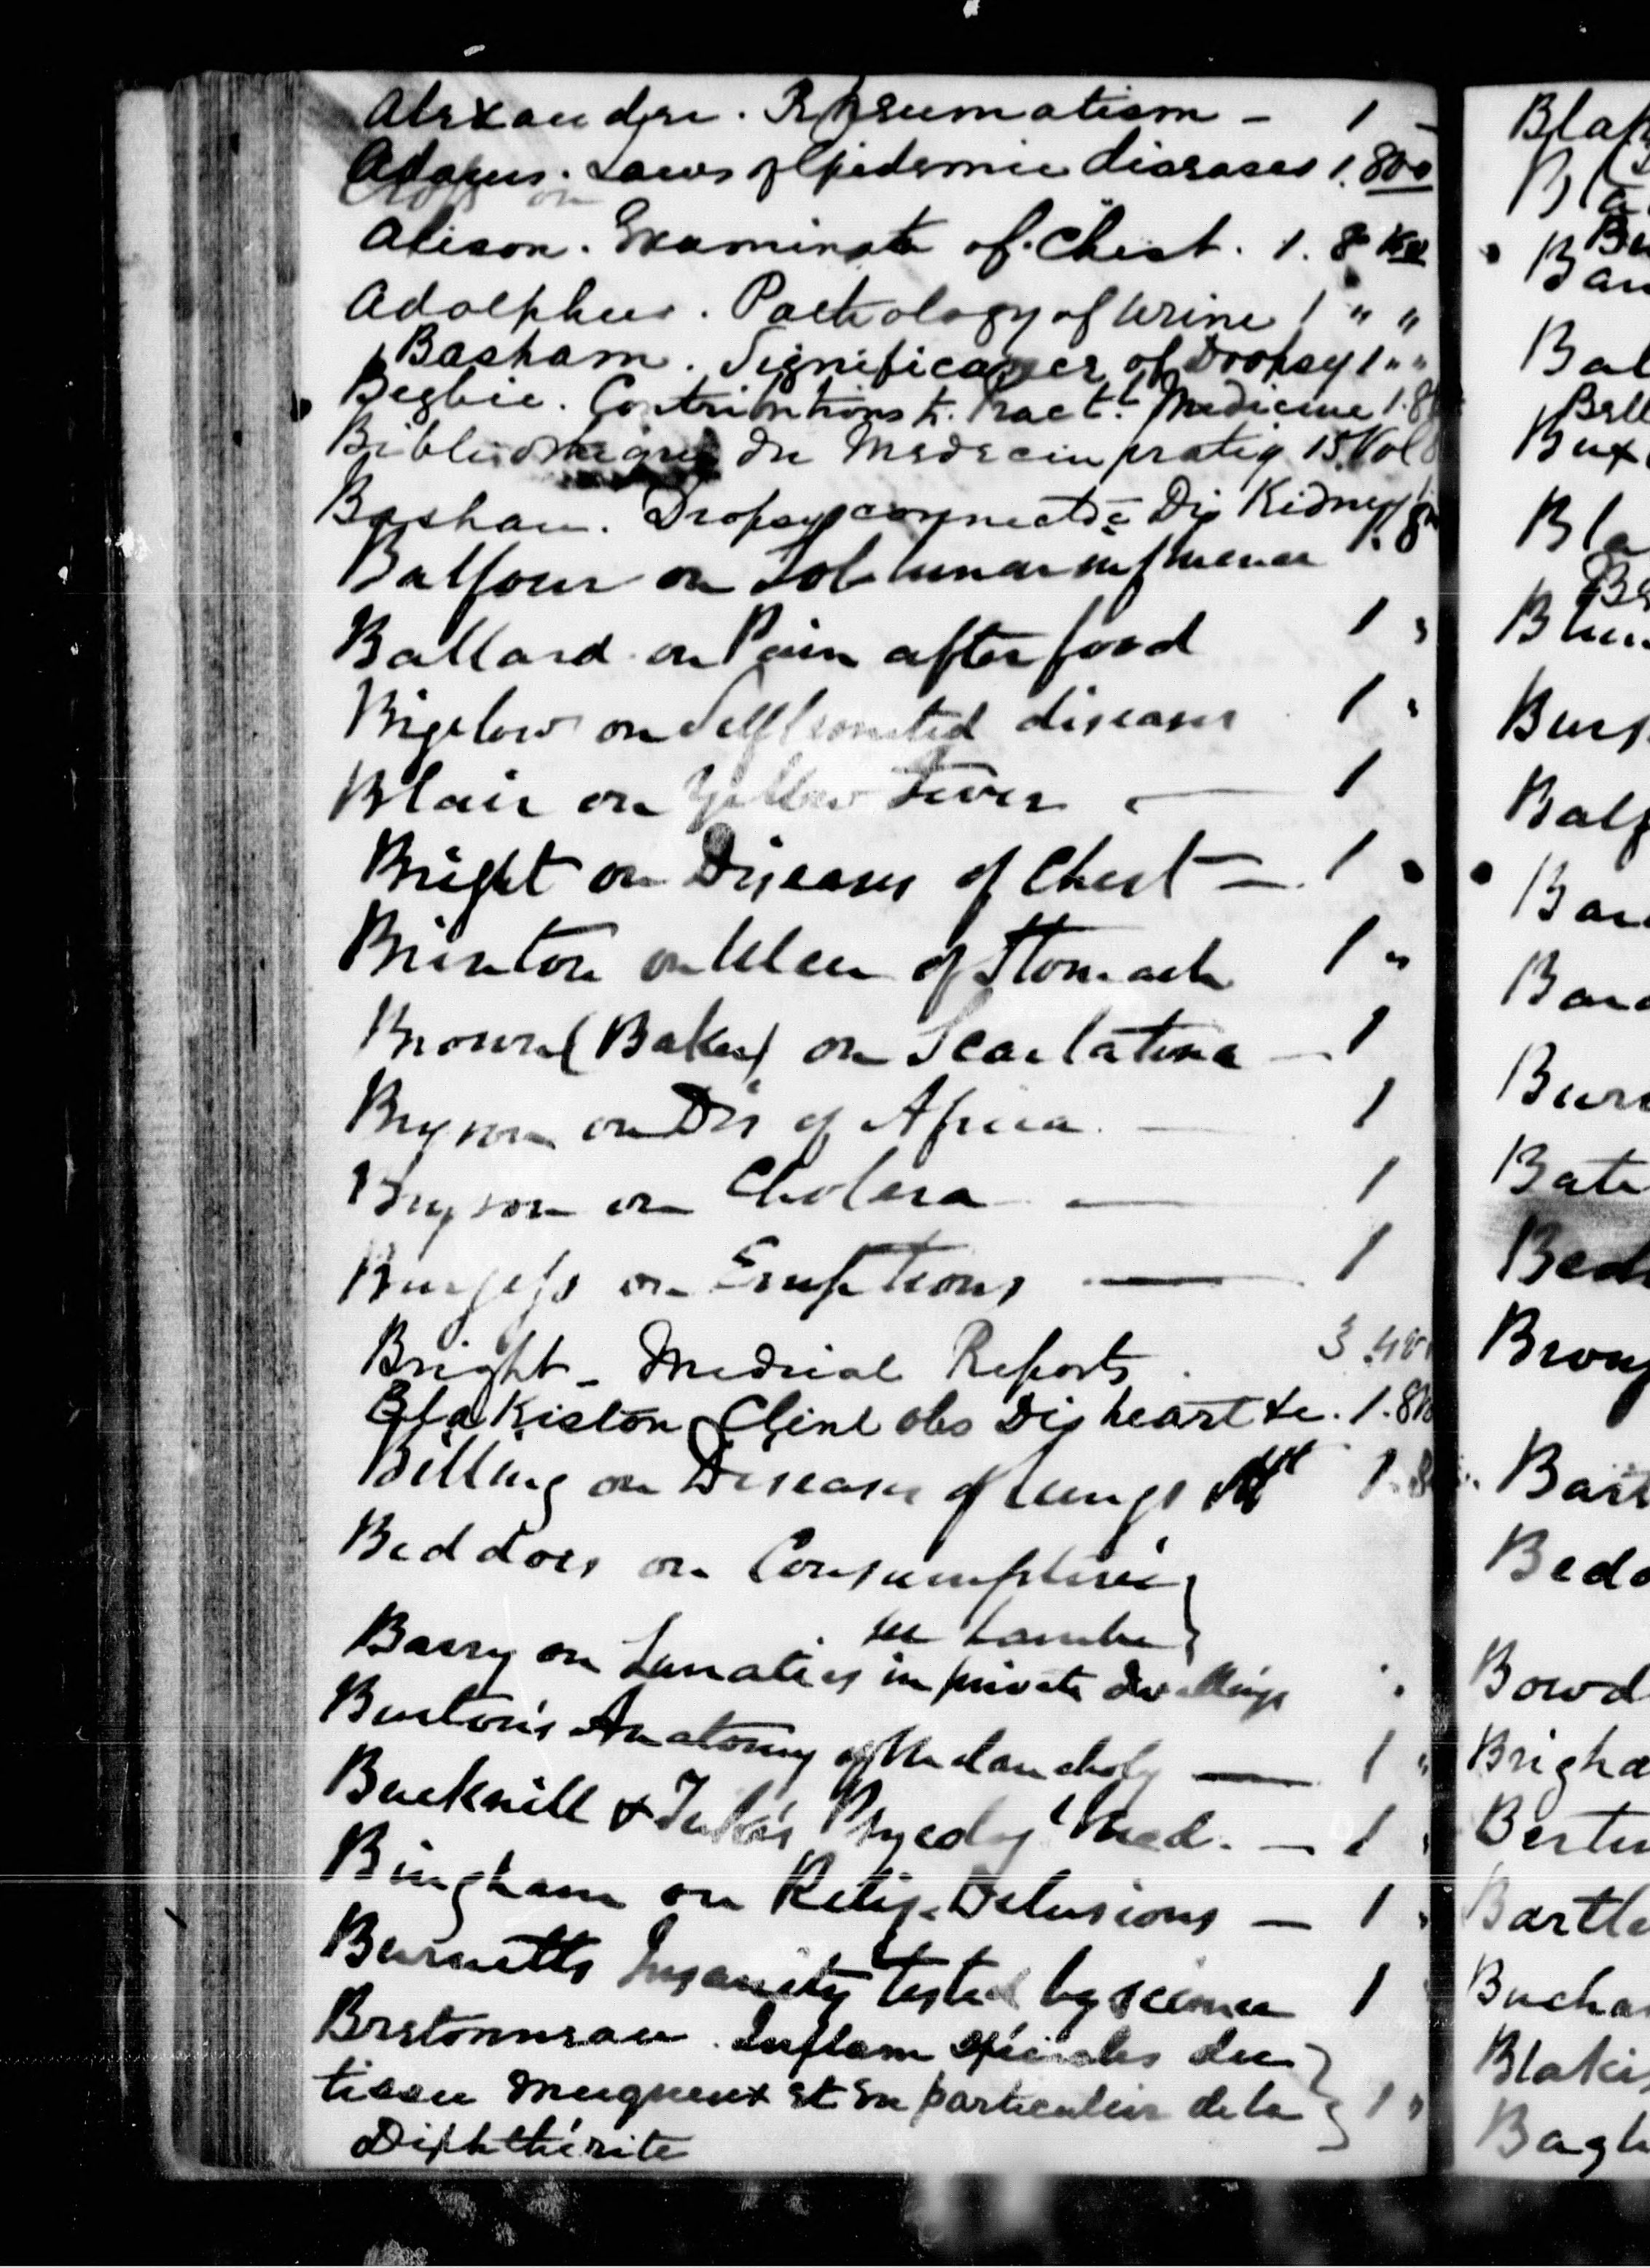 Alexander. Rheumatism - 1 -
Adams. Laws of Epidemic diseases 1. 8vo
Alison. Examinatn of Chest. 1. 8vo
Adolphus. Pathology of Urine 1 " "
Basham. Significance of Dropsy 1 " "
Begbie. Contributions to Pract. Medicine 1.8
Bibliotheque du Medecin pratiq 15 Vol 8
Basham. Dropsy connectd c Dis Kidney 1.8
Balfour on Sol-lunar influence
Ballard on Pain after food 1 "
Bigelow on Self limited diseases 1 "
Blair on Yellow Fever — 1
Bright on Diseases of Chest — 1
Brinton on Ulcer of Stomach 1 "
Brown (Baker) on Scarlatina — 1
Bryson on Dis of Africa — 1
Bryson on Cholera — 1
Burgess on Eruptions — 1
Bright - Medical Reports 3 4to
Blakiston Clinl obs Dis heart &c. 1.8vo
Billing on Diseases of lungs 1.8
Beddoes on Consumption }
see Lambe }
Barry on Lunatics in private dwellings
Burton's Anatomy of Melancholy — 1 "
Bucknill & Tuke's Psycolog l Med. — 1 "
Bingham on Relig. Delusions — 1 "
Burnetts Insanity tested by science 1
Bretonneau. Inflam spéciales du }
tissu muqueux et en particulier de la } 1 "
Diphthérite
Blak
Bla
Bal
Bell
Bux
Bla
Balf
Bar
Bate
Bedd
Bart
Bedd
Bowd
Brigha
Bartle
Bucha
Blakis
Bagl